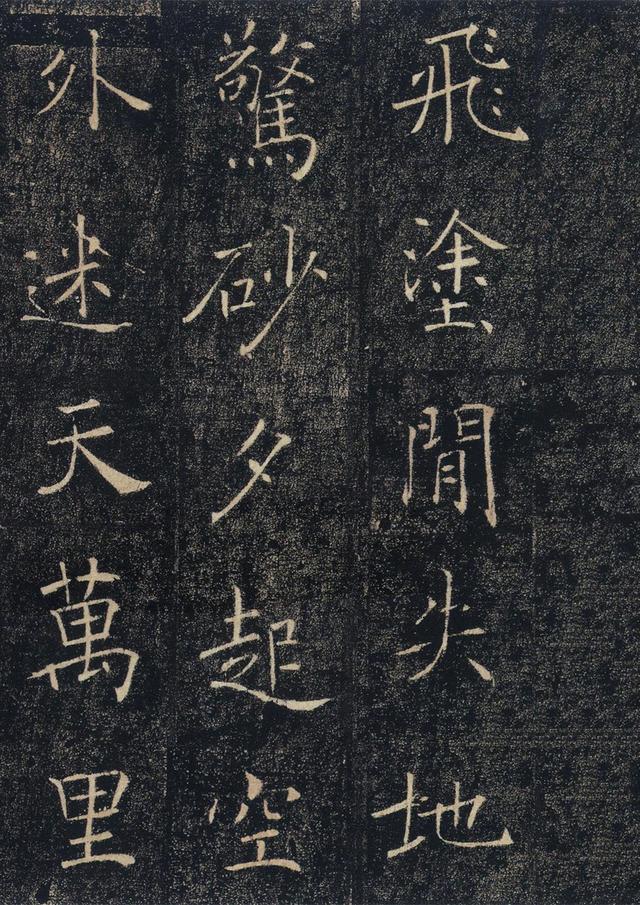 飛塗間失地
驚砂夕起空
外迷天萬里